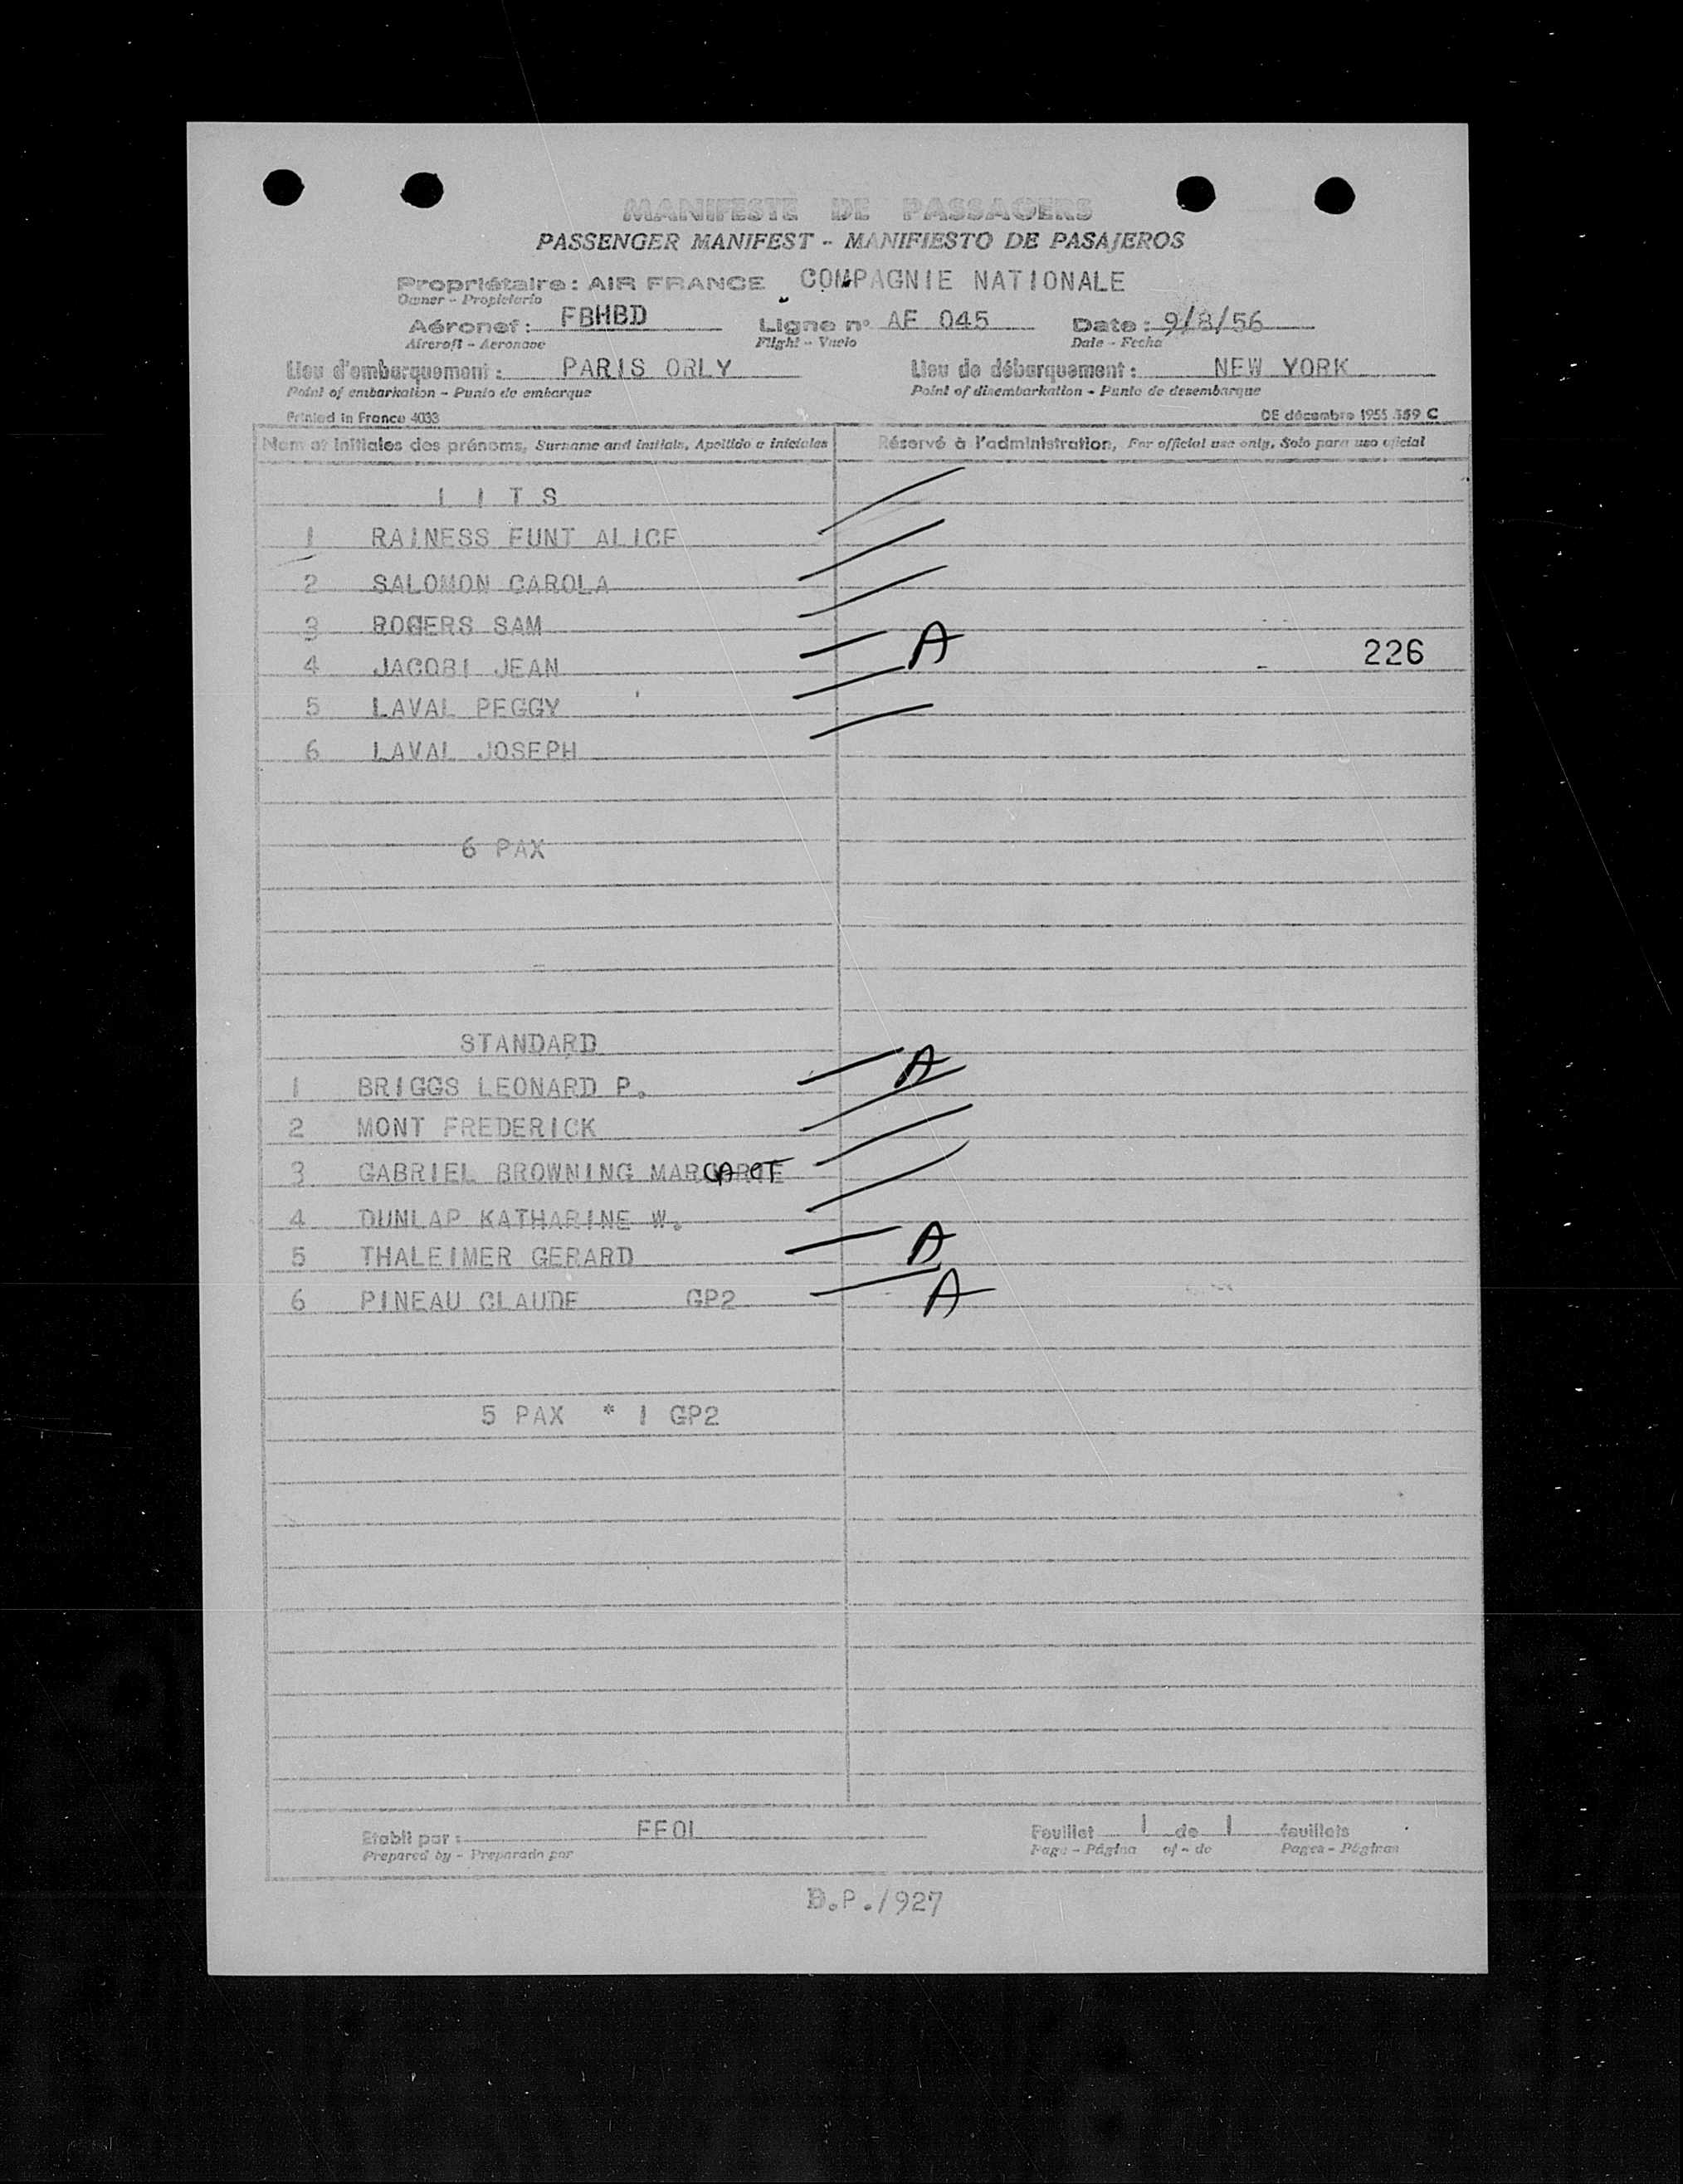 MANIFESTE DE PASSAGERS
PASSENGER MANIFEST - MANIFIESTO DE PASAJEROS
Propriétaire : AIR FRANCE COMPAGNIE NATIONALE
Owner - Propietario
Aéronef : FBHBD Ligne n° AF 045 Date : 9/8/56
Aircraft - Aeronave Flight - Vuelo Date - Fecha
Lieu d'embarquement : PARIS ORLY Lieu de débarquement : NEW YORK
Point of embarkation - Punto de embarque Point of disembarkation - Punto de desembarque
Printed in France 4033 DE décembre 1955 359 C
Nom et initiales des prénoms, Surname and initials, Apellido e iniciales Réservé à l'administration, For official use only, Solo para uso oficial
L I T S
1 RAINESS FUNT ALICE
2 SALOMON CAROLA
3 ROGERS SAM
4 JACOBI JEAN A 226
5 LAVAL PEGGY
6 LAVAL JOSEPH
6 PAX
STANDARD
1 BRIGGS LEONARD P. A
2 MONT FREDERICK
3 GABRIEL BROWNING
4 DUNLAP KATHARINE W.
5 THALEIMER GERARD A
6 PINEAU CLAUDE GP2 A
5 PAX * 1 GP2
Etabli par : Feuillet 1 de 1 feuillets
Prepared by - Preparado por Page - Página of - de Pages - Páginas
D.P./927